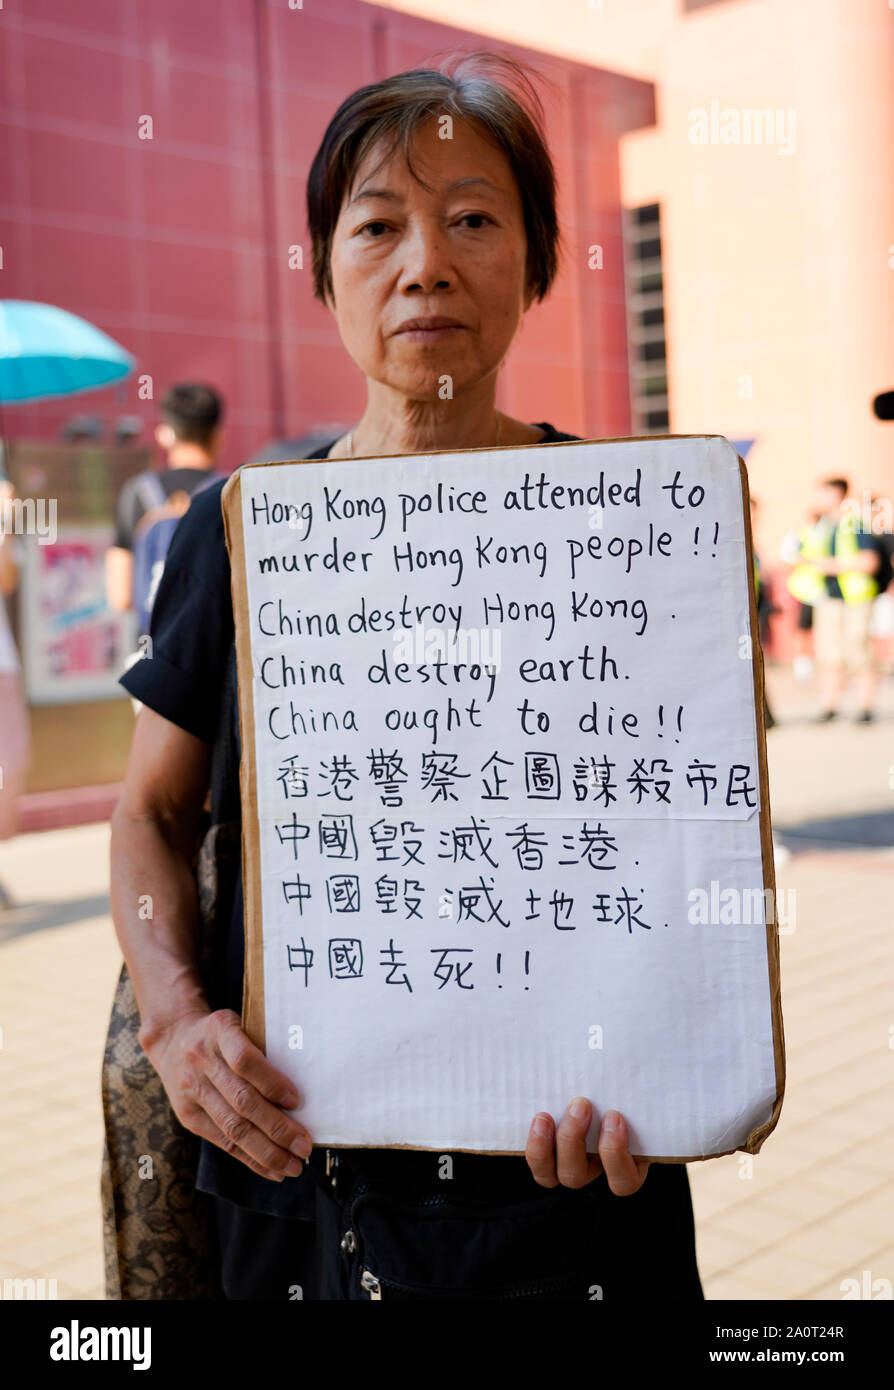 Hong Kong police attended to
murder Hong Kong people!!
China destroy Hong Kong.
China destroy earth.
China ought to die!!
香港警察企圖謀殺市民
中國毀滅香港.
中國毀滅地球.
中國去死!!
alamy
alamy
alamy
alamy
alamy
Image ID: 2A0T24R
www.alamy.com